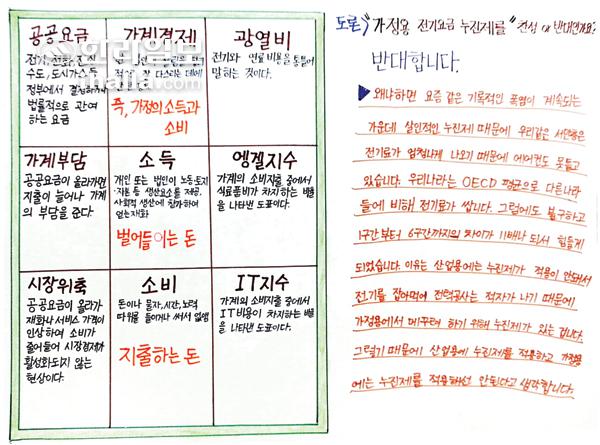 공공요금
전기, 전화, 전신,
수도, 도시가스
정부에서 결정하거나
법률적으로 관여
하는 요금
가계경제
다스리는 데에
즉, 가정의 소득과
소비
광열비
전기와 연료 비용을 통틀어
말하는 것이다.
가계부담
공공요금이 올라가면
지출이 늘어나 가계
의 부담을 준다.
소득
개인 또는 법인이 노동·토지
·자본 등 생산요소를 제공,
사회적 생산에 참가하여
얻는 재화
벌어들이는 돈
엥겔지수
가계의 소비지출 중에서
식료품비가 차지하는 비율
을 나타낸 도표이다.
시장위축
공공요금이 올라가
재화나 서비스 가격이
인상하여 소비가
줄어들어 시장경제가
활성화되지 않는
현상이다.
소비
돈이나 물자, 시간, 노력
따위를 들이거나 써서 없앰
지출하는 돈
IT지수
가계의 소비지출 중에서
IT비용이 차지하는 비율
을 나타낸 도표이다.
토론) 가정용 전기요금 누진제를 "찬성 or 반대인가요?
반대합니다.
왜냐하면 요즘 같은 기록적인 폭염이 계속되는
가운데 살인적인 누진제 때문에 우리같은 서민층은
전기료가 엄청나게 나오기 때문에 에어컨도 못틀고
있습니다. 우리나라는 OECD 평균으로 다른나라
들에 비해 전기료가 쌉니다. 그럼에도 불구하고
1구간부터 6구간까지의 차이가 11배나 되서 힘들게
되었습니다. 이유는 산업용에는 누진제가 적용이 안돼서
전기를 잡아먹어 전력공사는 적자가 나기 때문에
가정용에서 메꾸려 하기 위해 누진제가 있는 겁니다.
그렇기 때문에 산업용에 누진제를 적용하고 가정용
에는 누진제를 적용해선 안된다고 생각합니다.